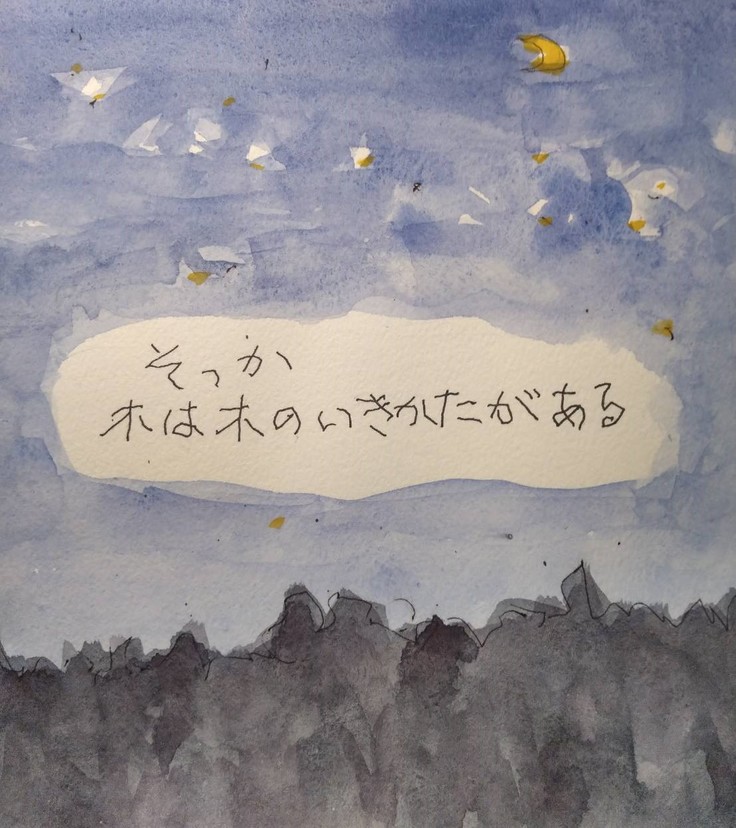 そっか
木は木のいきかたがある